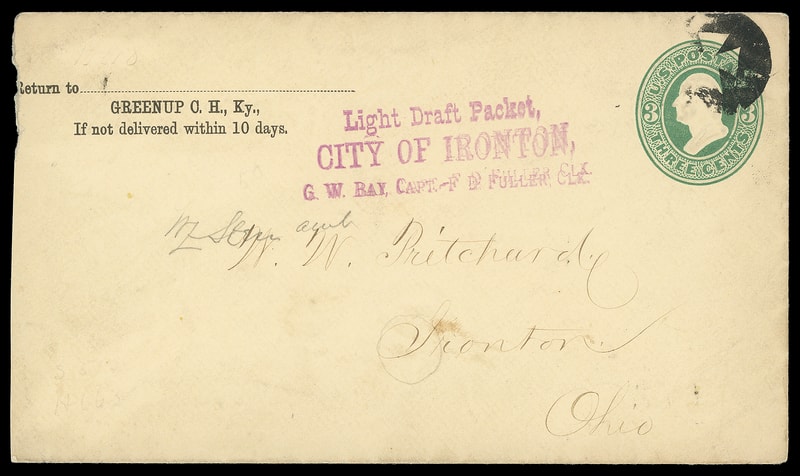 Return to
GREENUP C. H., Ky.,
If not delivered within 10 days.
Light Draft Packet,
CITY OF IRONTON,
G. W. BAY, CAPT.-F D FULLER, CLK.
U.S. POSTAGE
3 3
THREE CENTS
W. W. Pritchard
Ironton
Ohio